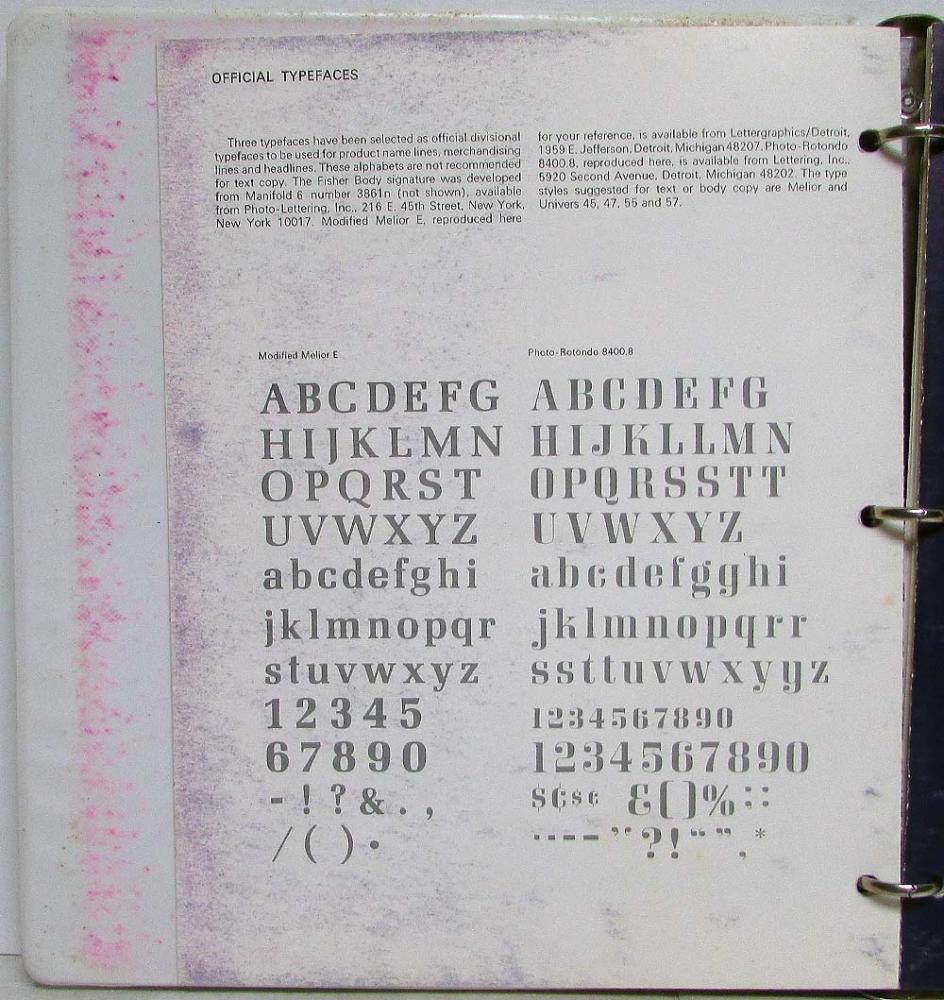 OFFICIAL TYPEFACES
Three typefaces have been selected as official divisional
typefaces to be used for product name lines, merchandising
lines and headlines. These alphabets are not recommended
for text copy. The Fisher Body signature was developed
from Manifold 6 number 3861n (not shown), available
from Photo-Lettering, Inc., 216 E. 45th Street, New York,
New York 10017. Modified Melior E, reproduced here
for your reference, is available from Lettergraphics/Detroit,
1959 E. Jefferson, Detroit, Michigan 48207. Photo-Rotondo
8400.8, reproduced here, is available from Lettering, Inc.,
5920 Second Avenue, Detroit, Michigan 48202. The type
styles suggested for text or body copy are Melior and
Univers 45, 47, 55 and 57.
Modified Melior E
ABCDEFG
HIJKLMN
OPQRST
UVWXYZ
abcdefghi
jklmnopqr
stuvwxyz
12345
67890
-!?&.,
/()•
Photo-Rotondo 8400.8
ABCDEFG
HIJKLLMN
OPQRSSTT
UVWXYZ
abcdefgghi
jklmnopqrr
ssttuvwxyyz
1234567890
1234567890
$¢$¢ &[]%::
··--–’’?!“”,*